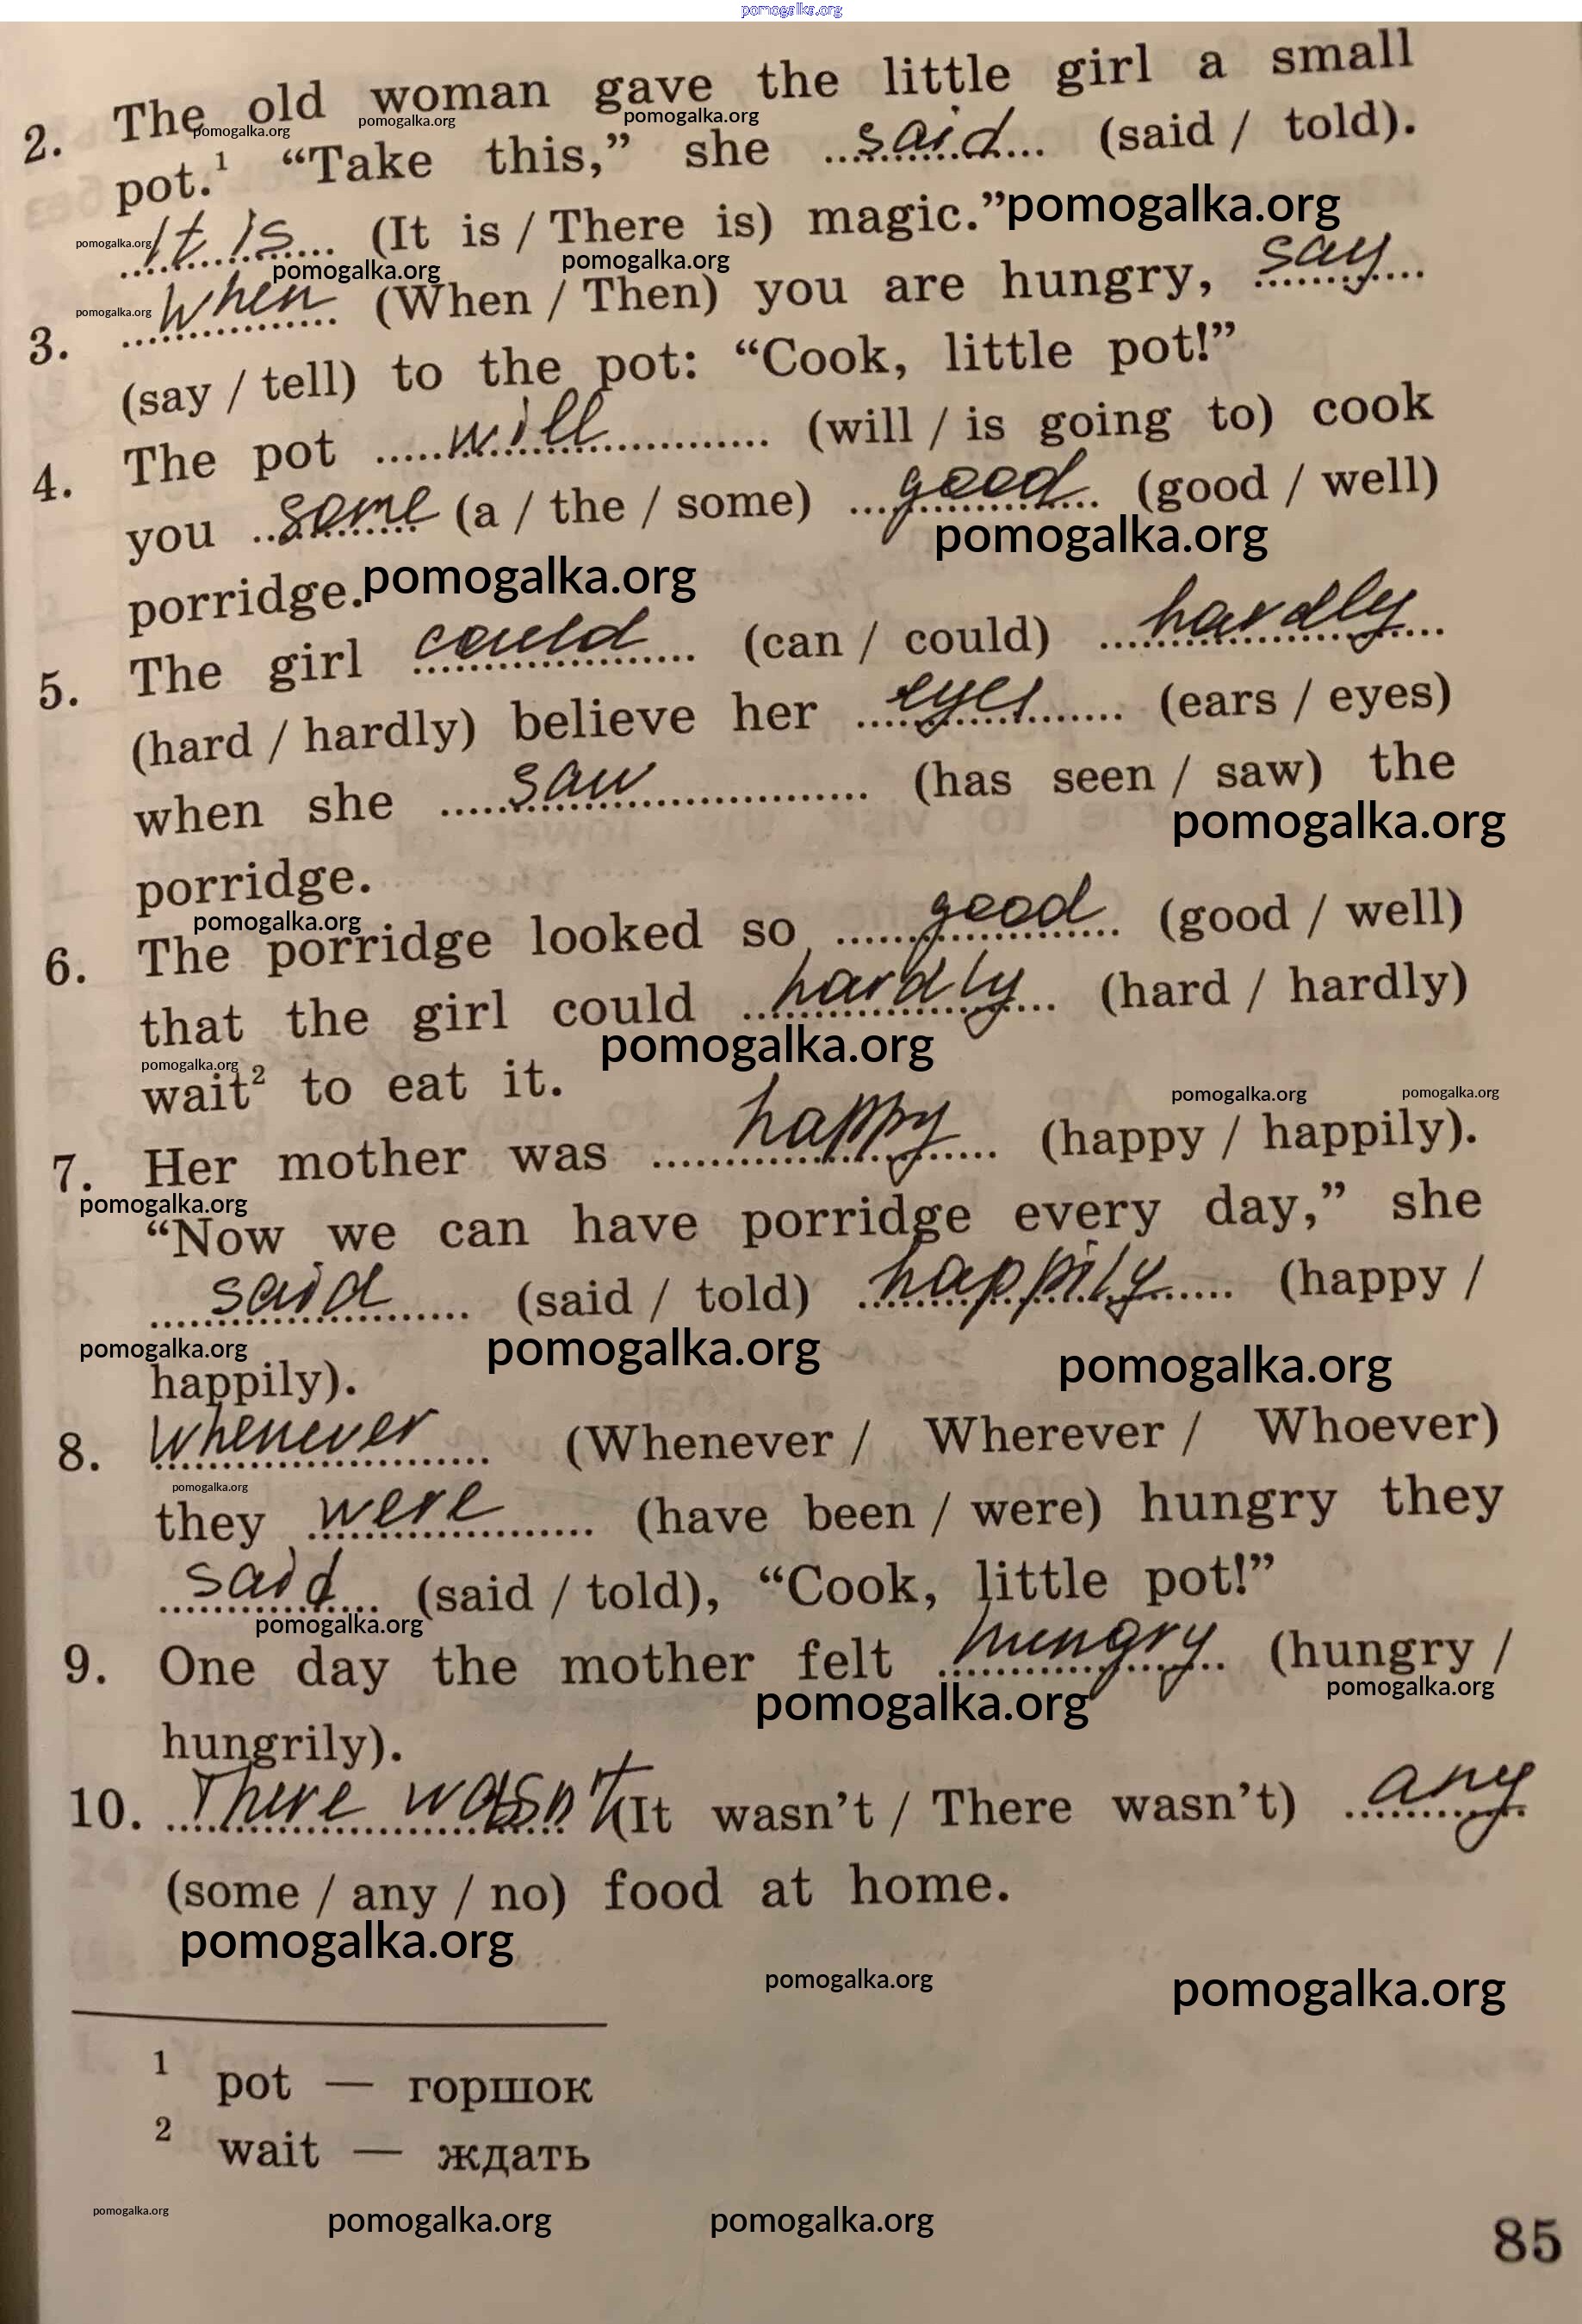 pomogalka.org
2. The old woman gave the little girl a small
pomogalka.org pomogalka.org pomogalka.org
pot.¹ “Take this,” she said (said / told).
It is (It is / There is) magic.” pomogalka.org
pomogalka.org pomogalka.org pomogalka.org
3. When (When / Then) you are hungry, say
pomogalka.org
(say / tell) to the pot: “Cook, little pot!”
4. The pot will (will / is going to) cook
you some (a / the / some) good (good / well)
pomogalka.org
porridge. pomogalka.org
5. The girl could (can / could) hardly
(hard / hardly) believe her eyes (ears / eyes)
when she saw (has seen / saw) the
pomogalka.org
porridge.
pomogalka.org
6. The porridge looked so good (good / well)
that the girl could hardly (hard / hardly)
pomogalka.org pomogalka.org
wait² to eat it.
pomogalka.org pomogalka.org
7. Her mother was happy (happy / happily).
pomogalka.org
“Now we can have porridge every day,” she
said (said / told) happily (happy /
pomogalka.org pomogalka.org pomogalka.org
happily).
8. Whenever (Whenever / Wherever / Whoever)
pomogalka.org
they were (have been / were) hungry they
said (said / told), “Cook, little pot!”
pomogalka.org
9. One day the mother felt hungry (hungry /
pomogalka.org pomogalka.org
hungrily).
10. There wasn't (It wasn’t / There wasn’t) any
(some / any / no) food at home.
pomogalka.org
pomogalka.org pomogalka.org
¹ pot — горшок
² wait — ждать
pomogalka.org pomogalka.org pomogalka.org
85